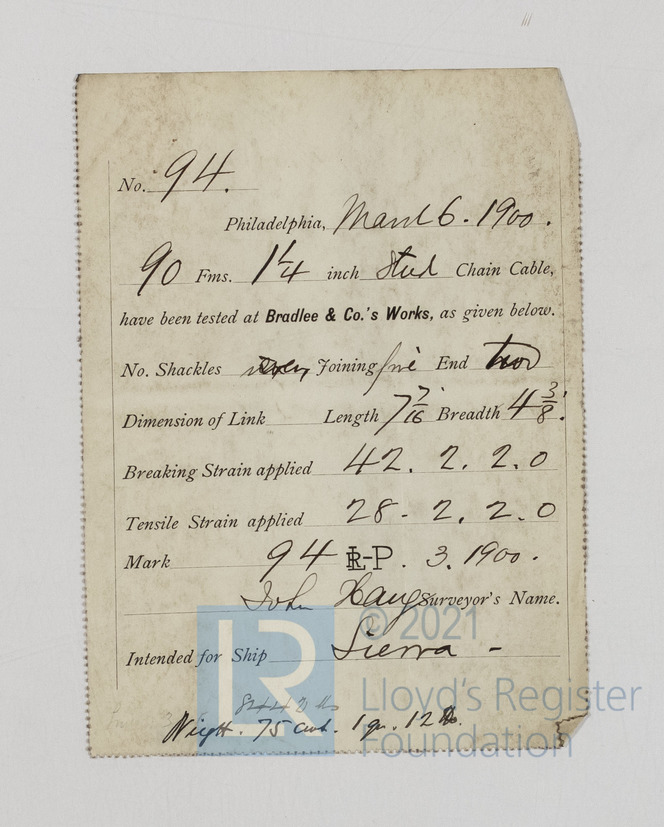 No. 94.
Philadelphia, March 6. 1900.
90 Fms. 1 1/4 inch Stud Chain Cable,
have been tested at Bradlee & Co.'s Works, as given below.
No. Shackles seven Joining five End two
Dimension of Link Length 7 7/16 Breadth 4 3/8"
Breaking Strain applied 42. 2. 2. 0
Tensile Strain applied 28. 2. 2. 0
Mark 94 LR-P. 3. 1900.
John Haug Surveyor's Name.
Intended for Ship Sierra -
Weight. 75 cwt. 1 qr. 12 lb.
© 2021
LR
Lloyd's Register
Foundation